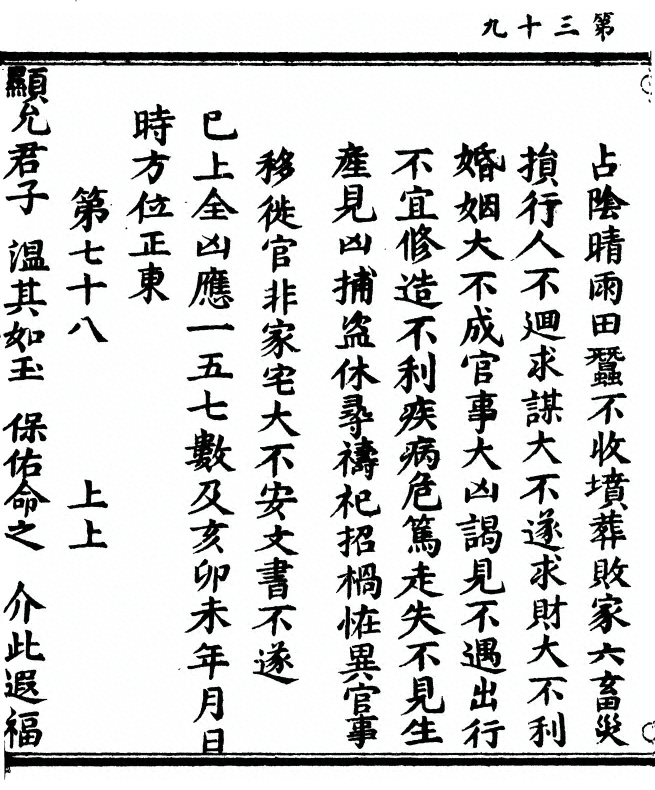 第三十九
占陰晴雨田蠶不收墳葬敗家六畜災
損行人不迴求謀大不遂求財大不利
婚姻大不成官事大凶謁見不遇出行
不宜修造不利疾病危篤走失不見生
產見凶捕盜休尋禱祀招禍怪異官事
移徙官非家宅大不安文書不遂
已上全凶應一五七數及亥卯未年月日
時方位正東
第七十八 上上
顯允君子 溫其如玉 保佑命之 介此遐福